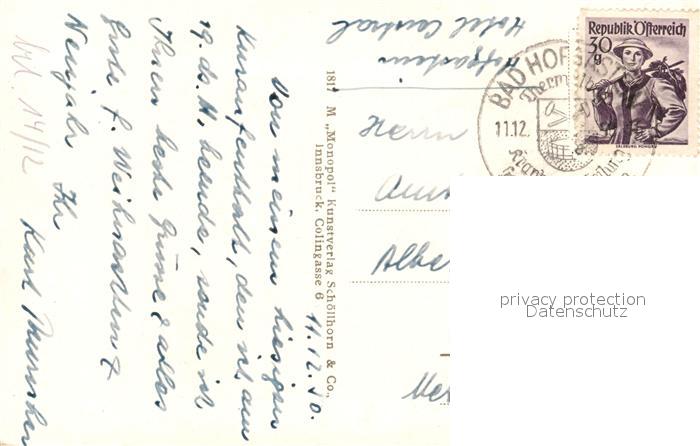 Hofgastein
Hotel Central
11.12.50.
Von meinem hiesigen
Kuraufenthalt, den ich am
19. ds. M. beende, sende ich
Ihnen beste Grüsse & alles
Gute f. Weihnachten &
Neujahr Ihr
Karl
14/12
181 M „Monopol" Kunstverlag Schöllhorn & Co.,
Innsbruck, Colingasse 6
Herrn
Albe
Republik Österreich
30
g
SALZBURG PONGAU
BAD HOF
Therm
11.12.
privacy protection
Datenschutz